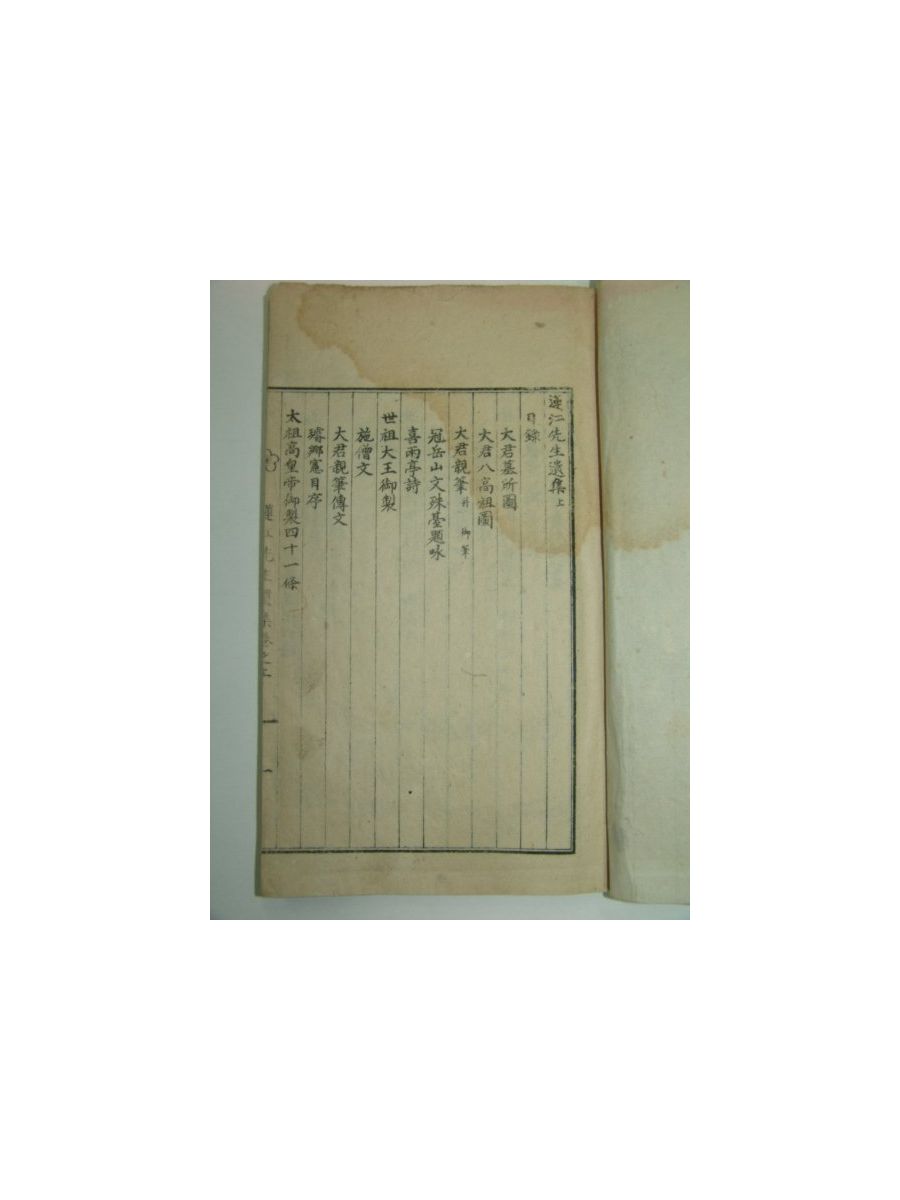 蓮江先生遺集上
目錄
大君墓所圖
大君八高祖圖
大君親筆 幷 御筆
冠岳山文殊臺題咏
喜雨亭詩
世祖大王御製
施僧文
大君親筆傳文
璿鄕憲目序
太祖高皇帝御製四十一條